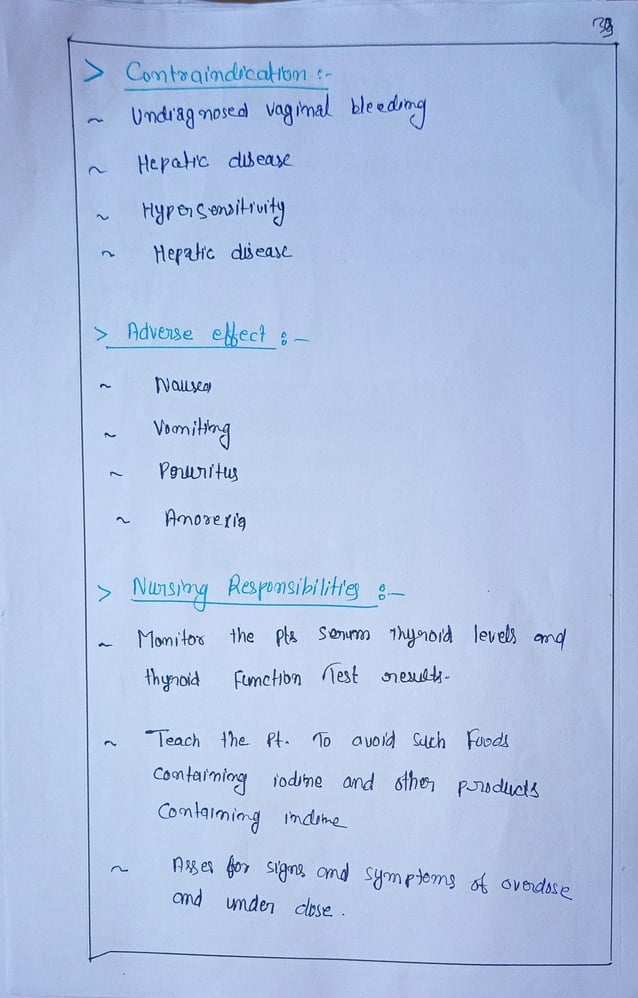 39
> Contraindication :-
~ Undiagnosed vaginal bleeding
~ Hepatic disease
~ Hypersensitivity
~ Hepatic disease
> Adverse effect :-
~ Nausea
~ Vomiting
~ Pruritus
~ Anorexia
> Nursing Responsibilities :-
~ Monitor the pts serum thyroid levels and
thyroid Function Test results.
~ Teach the Pt. To avoid such Foods
Containing iodine and other products
Containing indine
~ Asses for signs and symptoms of overdose
and under dose.